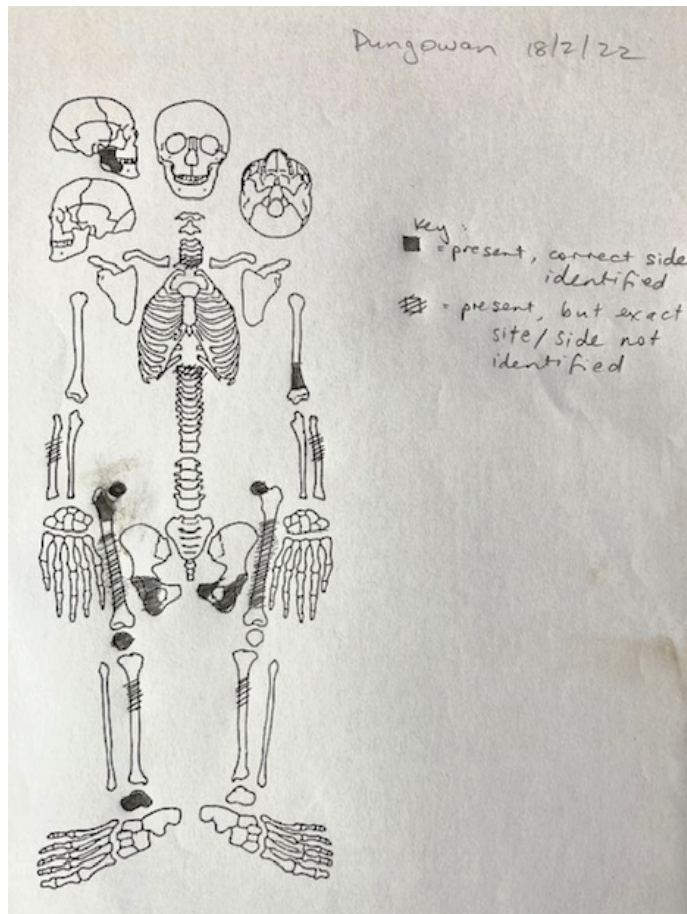 Dungowan 18/2/22
Key:
= present, correct side
identified
= present, but exact
site/side not
identified